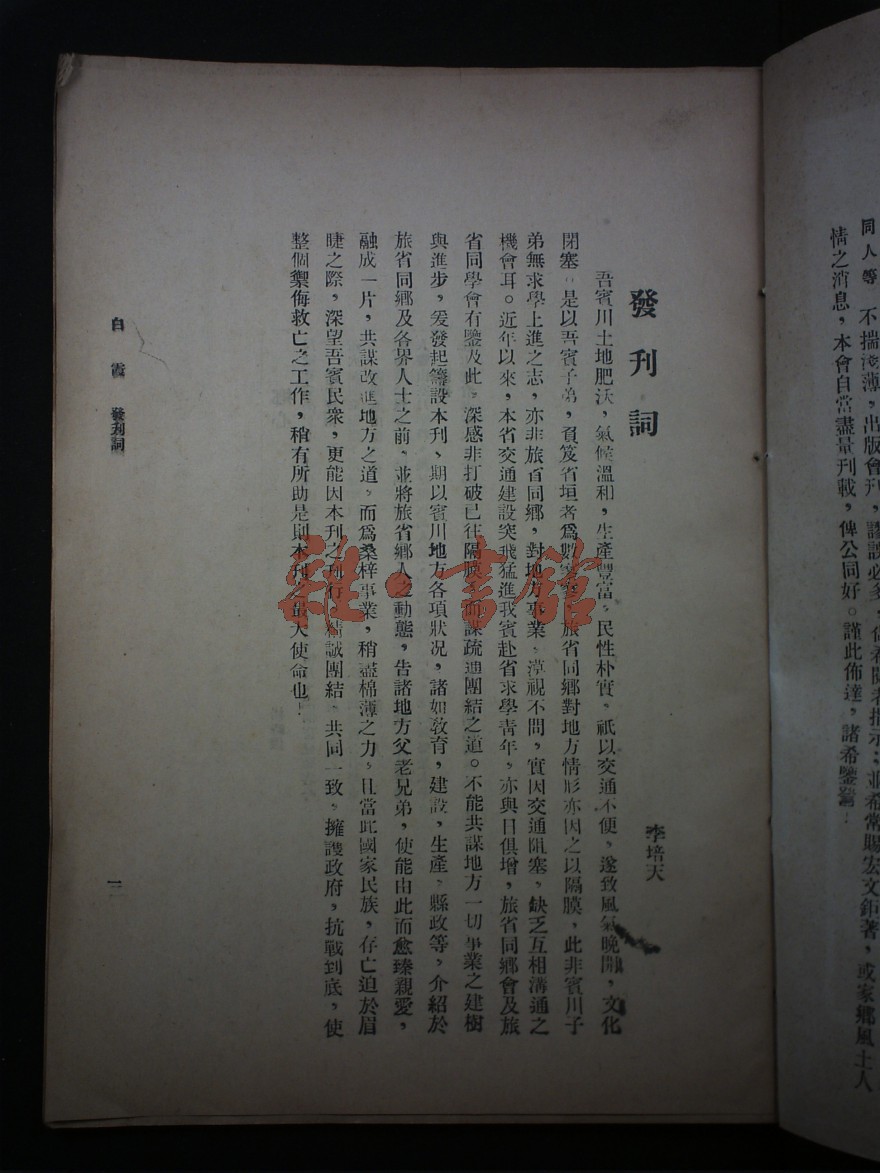 同人等 不揣淺薄，出版會刊，謬誤必多，
希常賜宏文鉅著，或家鄉風土人
情之消息，本會自當盡量刊載，俾公同好。謹此佈達，諸希鑒
發刊詞
李培天
吾賓川土地肥沃，氣候溫和，生產豐富，民性朴實，祇以交通不便，遂致風氣晚開，文化
閉塞，是以吾賓子弟，負笈省垣者爲數寥寥，旅省同鄉對地方情形亦因之以隔膜，此非賓川子
弟無求學上進之志，亦非旅省同鄉，對地方事業，漠視不問，實因交通阻塞，缺乏互相溝通之
機會耳。近年以來，本省交通建設突飛猛進我賓赴省求學青年，亦與日俱增，旅省同鄉會及旅
省同學會有鑒及此，深感非打破已往隔膜，而謀疏通團結之道。不能共謀地方一切事業之建樹
與進步，爰發起籌設本刊、期以賓川地方各項狀況，諸如敎育，建設，生產，縣政等，介紹於
旅省同鄉及各界人士之前，並將旅省鄉人之動態，告諸地方父老兄弟，使能由此而愈臻親愛，
融成一片，共謀改進地方之道，而爲桑梓事業，稍盡棉薄之力，且當此國家民族，存亡迫於眉
睫之際，深望吾賓民衆，更能因本刊之刊行，精誠團結，共同一致，擁護政府，抗戰到底，使
整個禦侮救亡之工作，稍有所助是則本刊之最大使命也！
白霞 發刊詞
三
雜書館